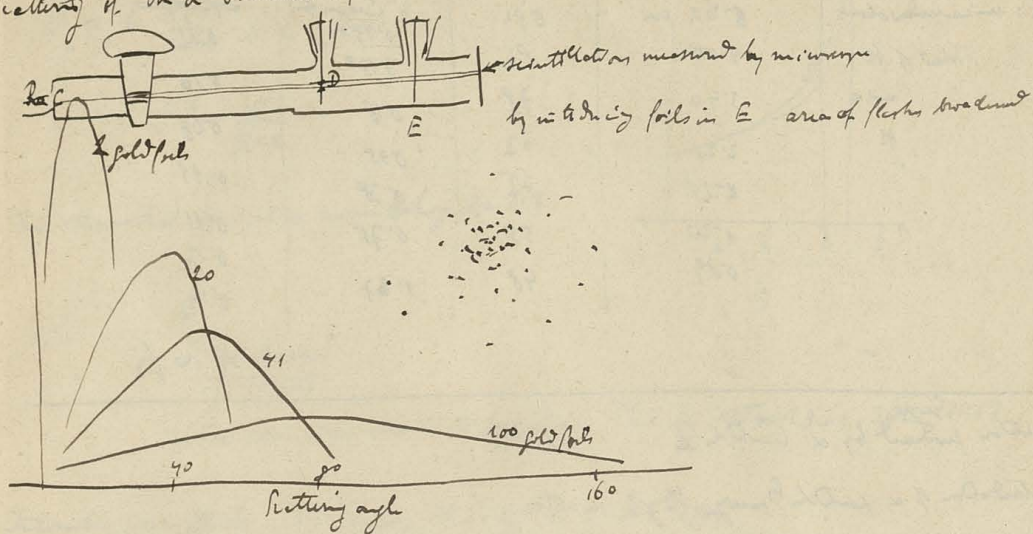 scattering of
Ra C
D
← scintillations measured by microscope
by introducing foils in E area of flashes broadened
E
2 gold foils
20
41
100 gold foils
40 80 160
Scattering angle